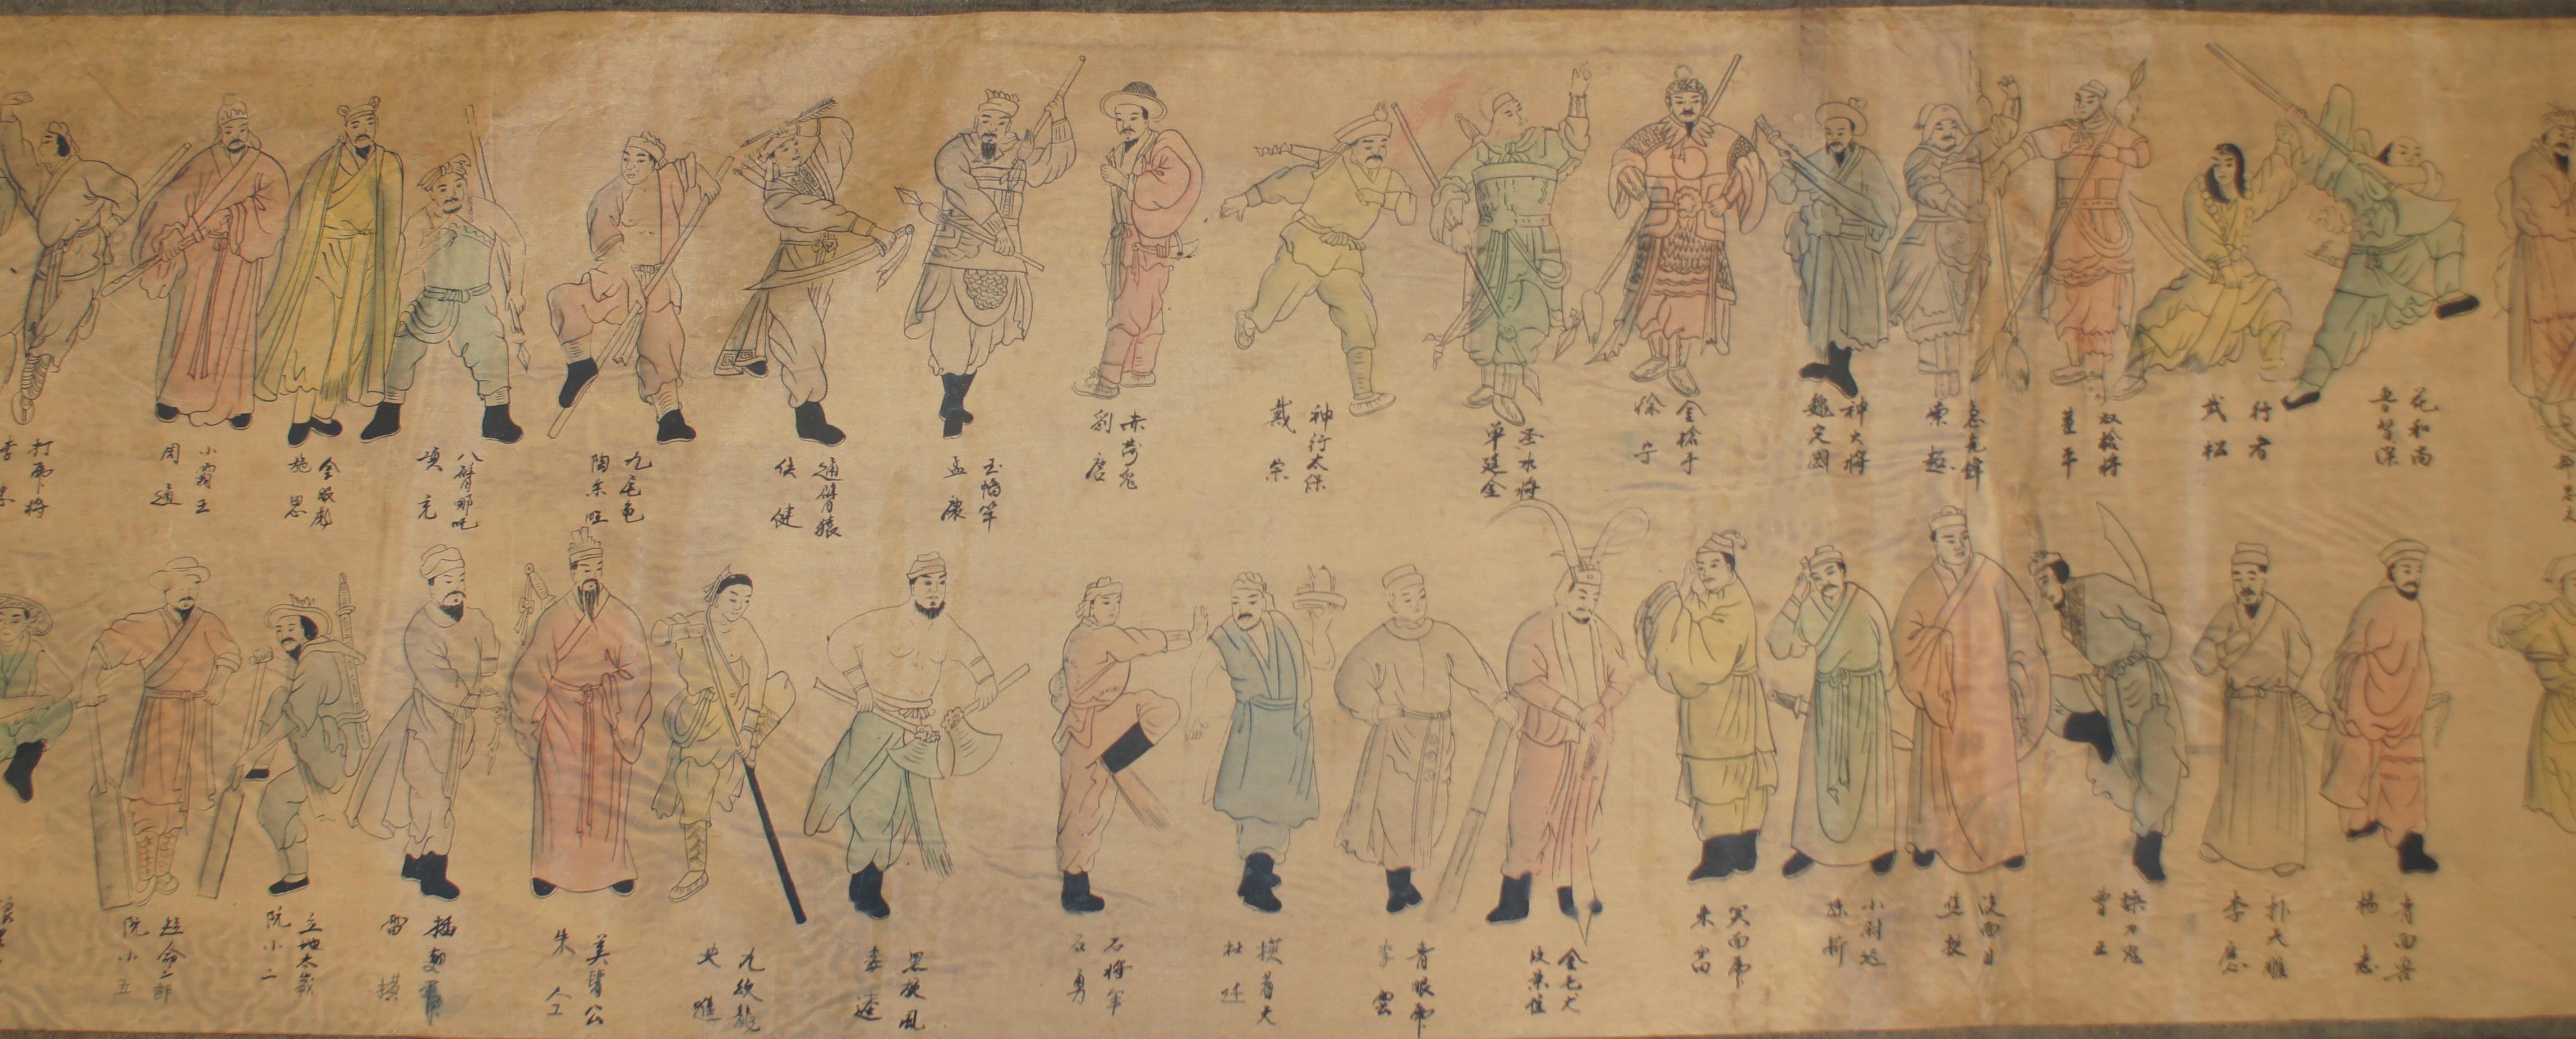 花和尚
鲁智深
行者
武松
双枪将
董平
急先锋
索超
神火将
魏定國
金槍手
徐宁
圣水将
单廷圭
神行太保
戴宗
赤发鬼
刘唐
玉幡竿
孟康
通臂猿
侯健
九尾龟
陶宗旺
八臂哪吒
项充
金眼彪
施恩
小霸王
周通
打虎将
李忠
青面兽
杨志
扑天雕
李应
操刀鬼
曹正
没面目
焦挺
小尉迟
孙新
笑面虎
朱富
金毛犬
段景住
青眼虎
李雲
摸着天
杜迁
石将军
石勇
黑旋风
李逵
九纹龍
史進
美髯公
朱仝
插翅虎
雷横
立地太歲
阮小二
短命二郎
阮小五